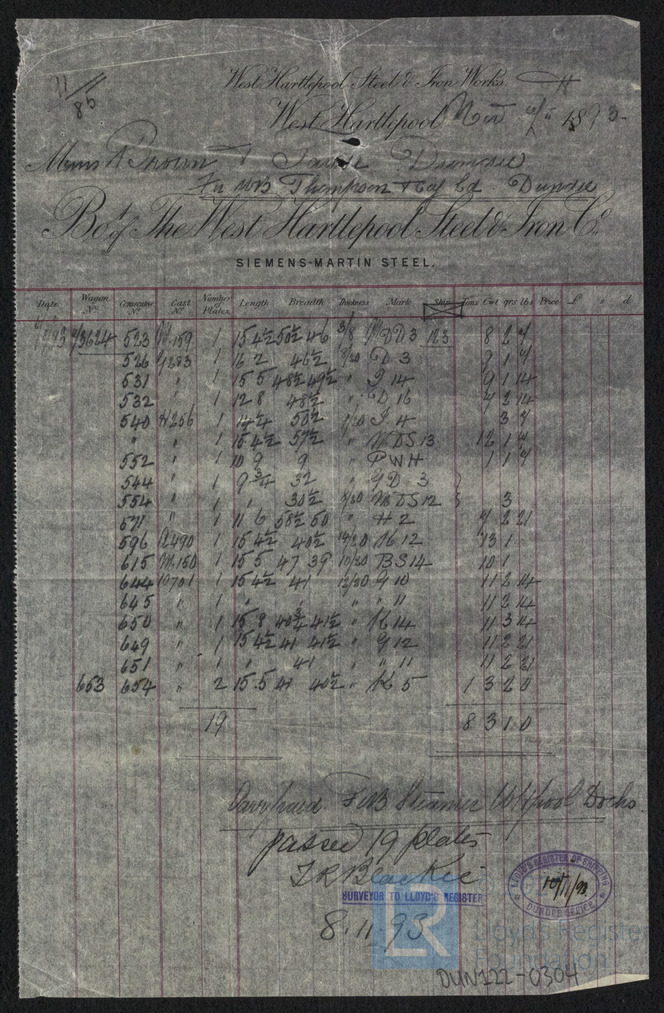 11/86
West Hartlepool Steel & Iron Works
West Hartlepool Nov 1893
Messrs Brown & Dundee
For WB Thompson & Coy Ld. Dundee
Bot. of The West Hartlepool Steel & Iron Co.
SIEMENS-MARTIN STEEL.
Date Wagon No. Consecutive No. Cast No. Number Plates Length Breadth Thickness Mark Ship Tons Cwt qrs lbs Price £ s d
3624 523 159 1 15 4½ 50½ 46 3/8 DD3 123 8 2 7
526 1 16 2 46½ D 3 9 1 7
531 " 1 15 5 48½ 49½ " 14 9 1 14
532 " 1 12 8 48½ " D 16 7 2 14
540 H256 1 14 4 50½ 14 3 7
" " 1 15 4½ 57½ " DS 13 12 1 7
552 " 1 10 9 9 " PWH 1 1 7
544 " 1 9 32 D 3
554 " 1 " 30½ DS 12 3
571 " 1 11 6 58½ 50 " H 2 7 2 21
596 490 1 15 4½ 40½ 12 13 1
615 150 1 15 5 47 39 10/20 BS 14 10 1
644 701 1 15 4½ 41 12/20 10 11 2 14
645 " 1 " " " " 11 11 2 14
650 " 1 15 8 41½ " K 14 11 3 14
649 " 1 15 4½ 41 41½ " 12 11 2 21
651 " 1 " 41 " " 11 11 2 21
653 654 " 2 15 5 41 40½ " K 5 1 3 2 0
19 8 3 1 0
Carr paid FOB Steamer W Hpool Docks.
passed 19 plates
T R Blackie
SURVEYOR TO LLOYD'S REGISTER
8.11.93
LLOYD'S REGISTER OF SHIPPING
10/11/93
DUNDEE OFFICE
LR
Lloyd's Register
Foundation
DUN122-0304